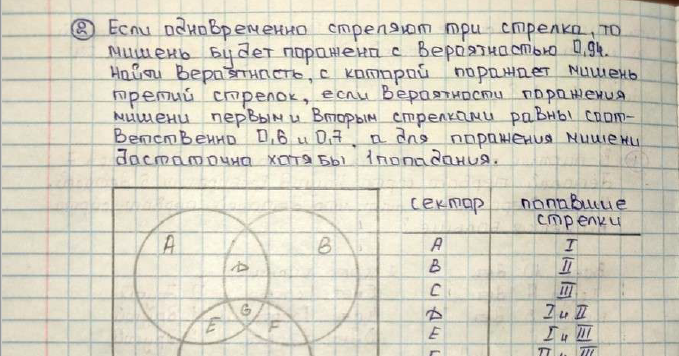 ② Если одновременно стреляют три стрелка, то
мишень будет поражена с вероятностью 0,94.
Найти вероятность, с которой поражает мишень
третий стрелок, если вероятности поражения
мишени первым и вторым стрелками равны соот-
ветственно 0,6 и 0,7, а для поражения мишени
достаточно хотя бы 1 попадания.
сектор попавшие
стрелки
A I
B II
C III
D I и II
E I и III
F II и III
A B
D
G
E F